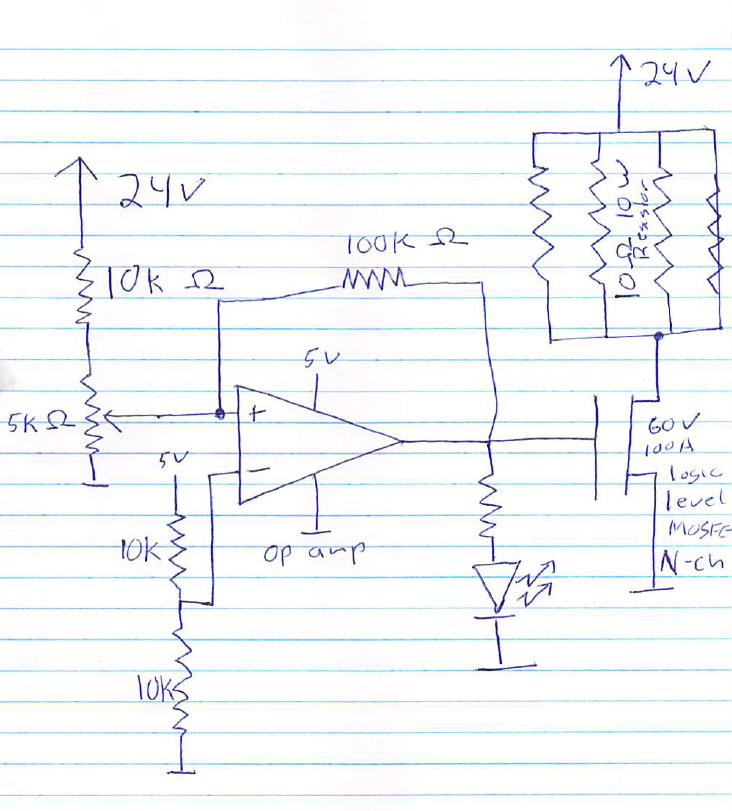 24V
24V
10k Ω
100K Ω
10Ω 10W
Resistor
5V
+
5K Ω
5V
−
60V
100A
logic
level
MOSFE
N-ch
10K
op amp
10K